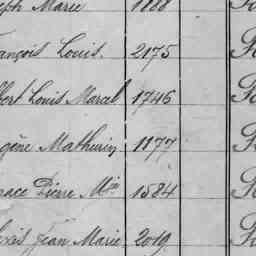 eph Marie 1888
ançois Louis. 2175
bert Louis Marcel 1746
gène Mathurin 1177
nace Pierre Mie 1584
exis Jean Marie 2019